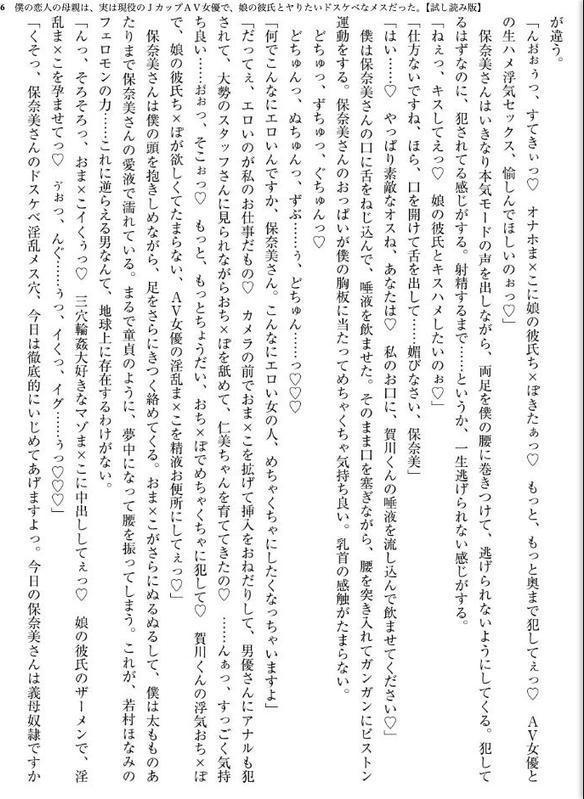 6　僕の恋人の母親は、実は現役のＪカップＡＶ女優で、娘の彼氏とヤりたいドスケベなメスだった。【試し読み版】
が違う。
「んおぉぅっ、すてきぃっ♡　オナホま×こに娘の彼氏ち×ぽきたぁっ♡　もっと、もっと奥まで犯してぇっ♡　ＡＶ女優と
の生ハメ浮気セックス、愉しんでほしいのぉっ♡」
　保奈美さんはいきなり本気モードの声を出しながら、両足を僕の腰に巻きつけて、逃げられないようにしてくる。犯して
るはずなのに、犯されてる感じがする。射精するまで……というか、一生逃げられない感じがする。
「ねぇっ、キスしてえっ♡　娘の彼氏とキスハメしたいのぉ♡」
「仕方ないですね、ほら、口を開けて舌を出して……媚びなさい、保奈美」
「はい……♡　やっぱり素敵なオスね、あなたは♡　私のお口に、賀川くんの唾液を流し込んで飲ませてください♡」
　僕は保奈美さんの口に舌をねじ込んで、唾液を飲ませた。そのまま口を塞ぎながら、腰を突き入れてガンガンにピストン
運動をする。保奈美さんのおっぱいが僕の胸板に当たってめちゃくちゃ気持ち良い。乳首の感触がたまらない。
　どちゅっ、ずちゅっ、ぐちゅんっ♡
　どちゅんっ、ぬちゅんっ、ずぶ……ぅ、どちゅん……っ♡♡♡
「何でこんなにエロいんですか、保奈美さん。こんなにエロい女の人、めちゃくちゃにしたくなっちゃいますよ」
「だってぇ、エロいのが私のお仕事だもの♡　カメラの前でおま×こを拡げて挿入をおねだりして、男優さんにアナルも犯
されて、大勢のスタッフさんに見られながらおち×ぽを舐めて、仁美ちゃんを育ててきたの♡　……んぁっ、すっごく気持
ち良い……おぉっ、そこぉっ♡　もっと、もっとちょうだい、おち×ぽでめちゃくちゃに犯して♡　賀川くんの浮気おち×ぽ
で、娘の彼氏ち×ぽが欲しくてたまらない、ＡＶ女優の淫乱ま×こを精液お便所にしてぇっ♡」
　保奈美さんは僕の頭を抱きしめながら、足をさらにきつく絡めてくる。おま×こがさらにぬるぬるして、僕は太もものあ
たりまで保奈美さんの愛液で濡れている。まるで童貞のように、夢中になって腰を振ってしまう。これが、若村ほなみの
フェロモンの力……これに逆らえる男なんて、地球上に存在するわけがない。
「んっ、そろそろっ、おま×こイくぅっ♡　三穴輪姦大好きなマゾま×こに中出ししてぇっ♡　娘の彼氏のザーメンで、淫
乱ま×こを孕ませてっ♡　ぅおっ、んぐ……ぅっ、イくっ、イグ……ぅっ♡♡♡」
「くそっ、保奈美さんのドスケベ淫乱メス穴、今日は徹底的にいじめてあげますよっ。今日の保奈美さんは義母奴隷ですか